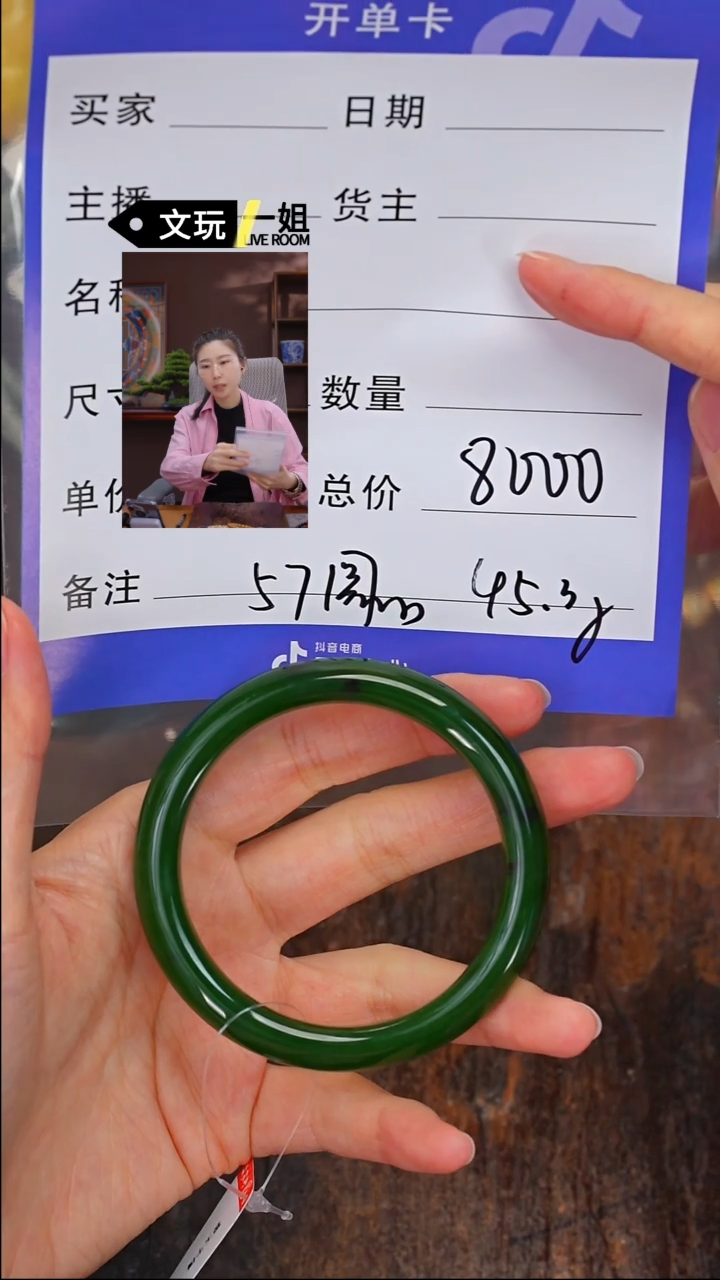 开单卡
买家 日期
主播 货主
文玩一姐
LIVE ROOM
名称
尺寸 数量
单价 总价 8000
备注 57圆 45.3g
抖音电商